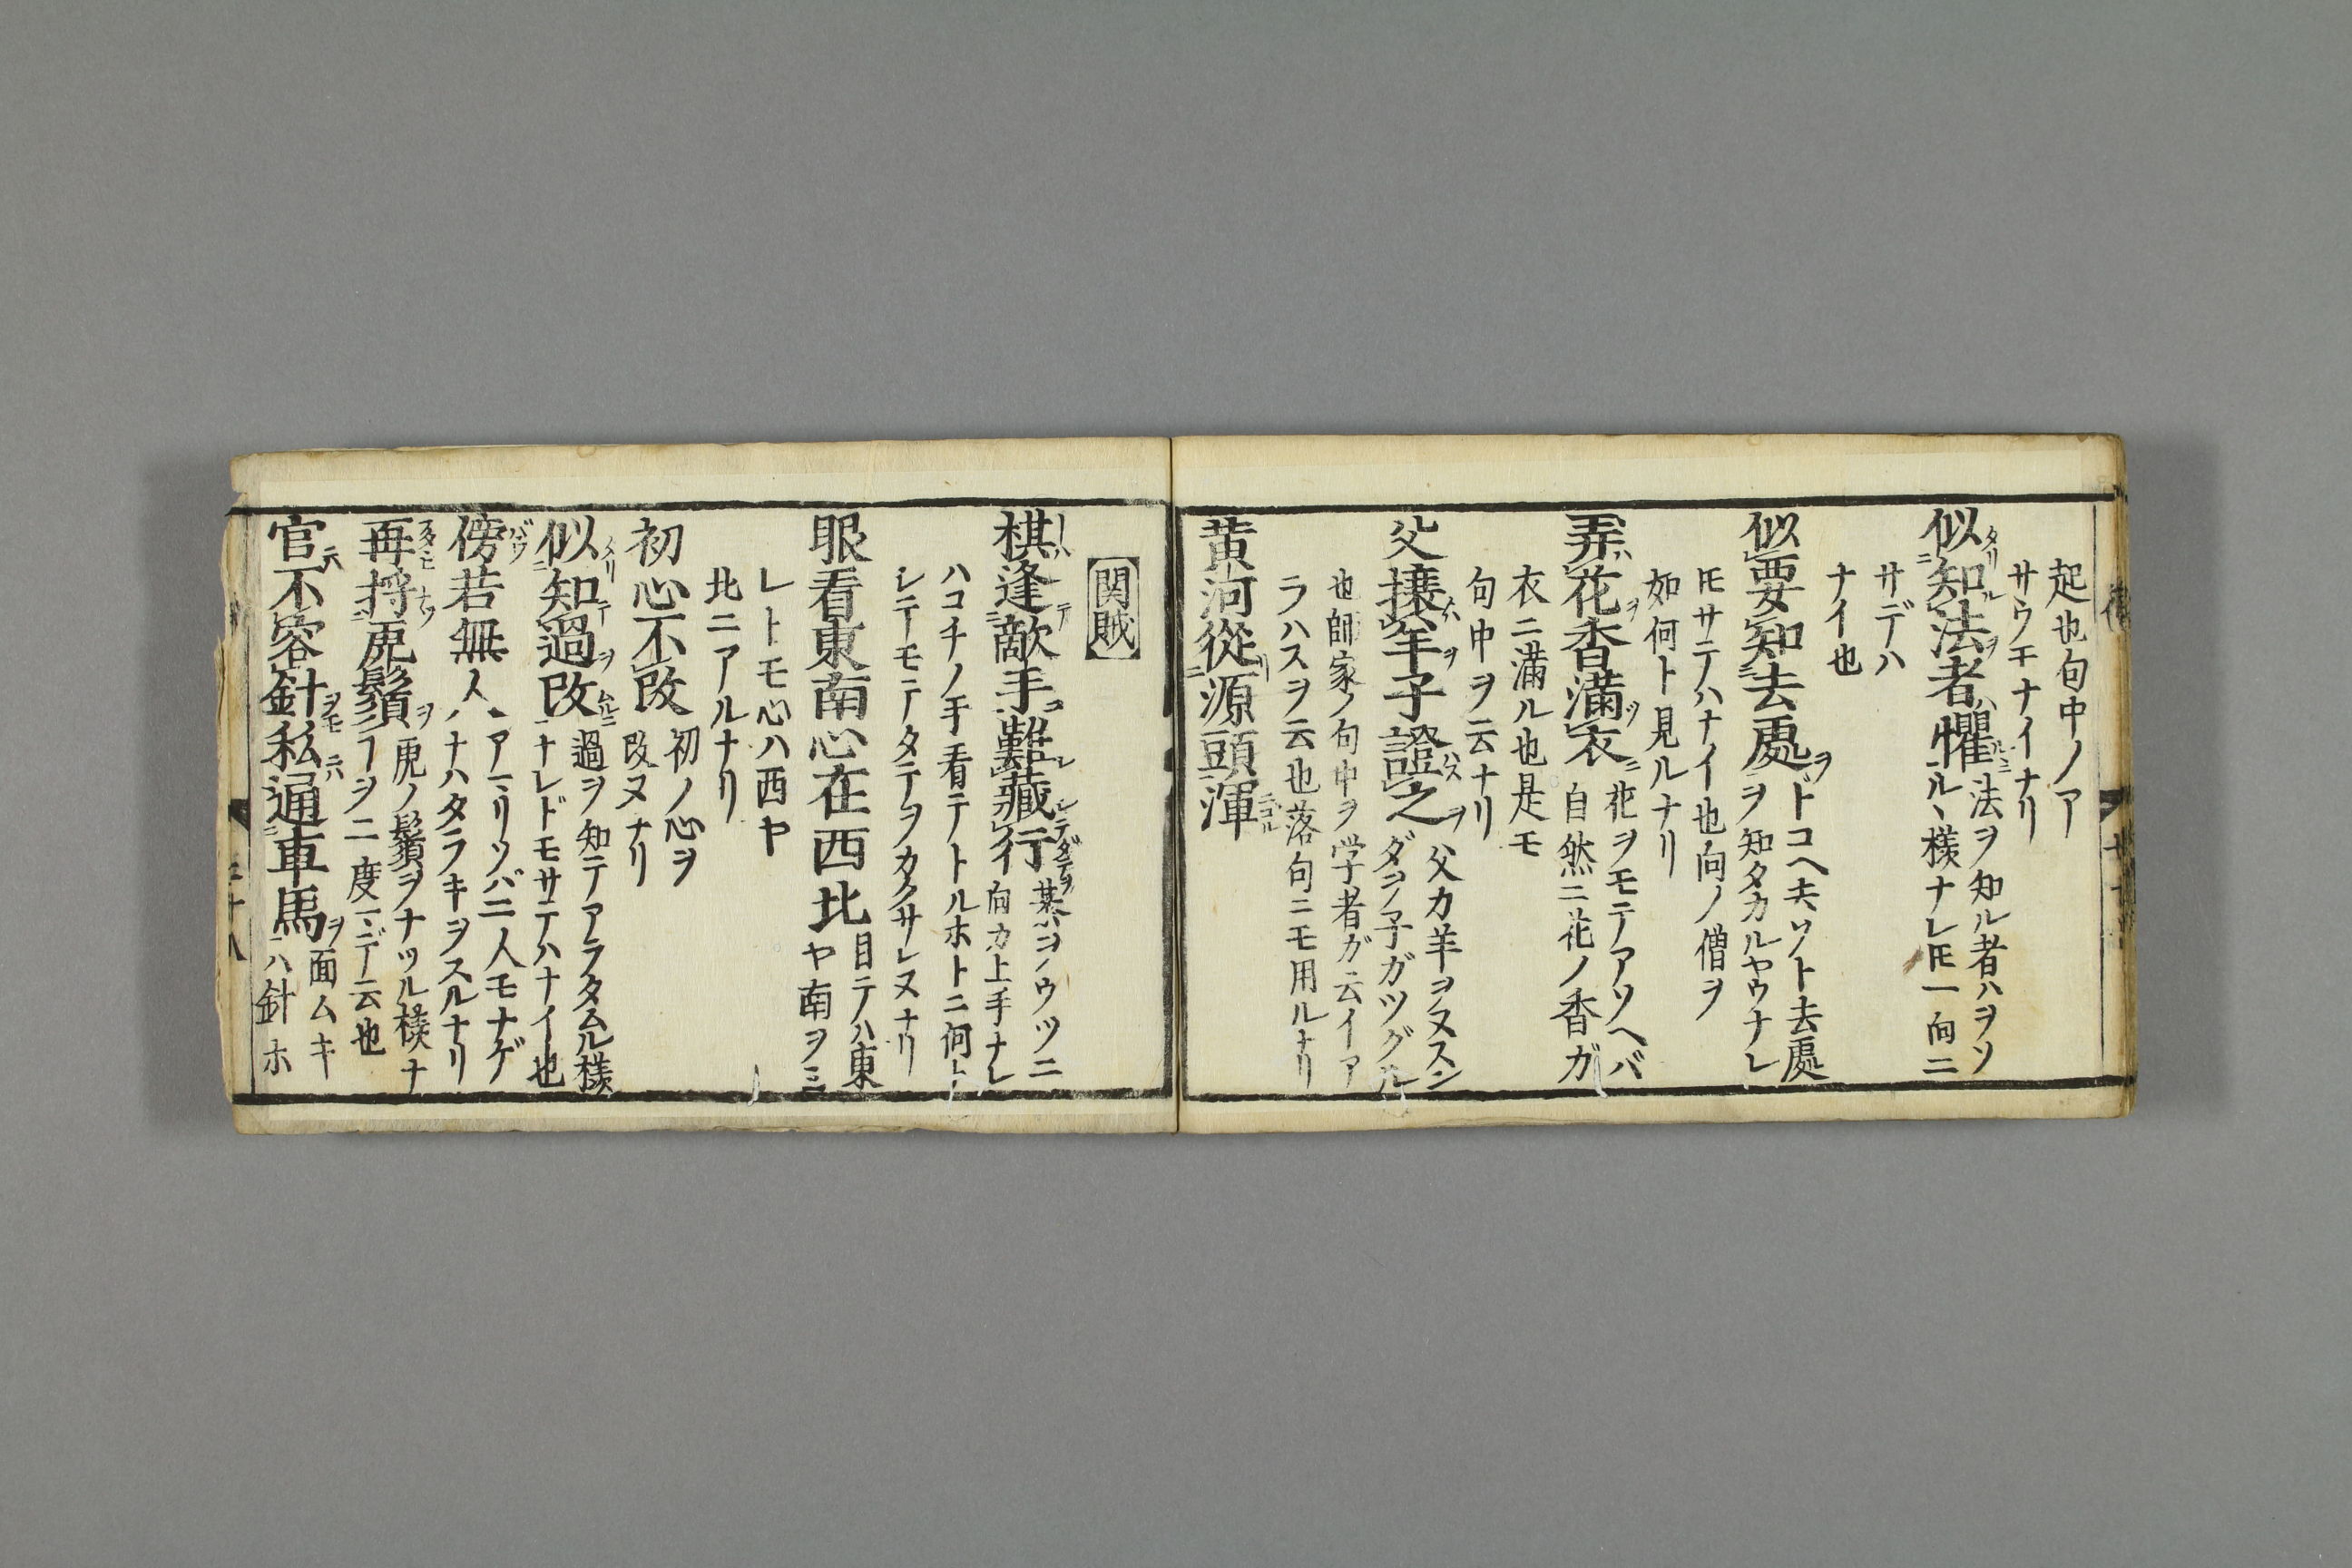 起也句中ノア
サウモナイナリ
似知法者懼 法ヲ知ル者ハヲソ
ルヽ様ナレ𪜈一向ニ
サデハ
ナイ也
似要知去處 ドコヘ夫ツト去處
ヲ知タカルヤウナレ
𪜈サテハナイ也向ノ僧ヲ
如何ト見ルナリ
弄花香滿衣 花ヲモテアソヘバ
自然ニ花ノ香ガ
衣ニ滿ル也是モ
句中ヲ云ナリ
父攘羊子證之 父カ羊ヲヌスン
ダヲ子ガツグル
也師家ノ句中ヲ学者ガ云イア
ラハスヲ云也落句ニモ用ルナリ
黄河從源頭渾
関賊
棋逢敵手難藏行 碁ヲウツニ
向カ上手ナレ
ハコチノ手看テトルホトニ何ト
シテモテタテヲカクサレヌナリ
眼看東南心在西北 目テハ東
ヤ南ヲミ
レトモ心ハ西ヤ
北ニアルナリ
初心不改 初ノ心ヲ
改ヌナリ
似知過改 過ヲ知テアラタムル様
ナレドモサテハナイ也
傍若無人 アリソバニ人モナゲ
ナハタラキヲスルナリ
再捋虎鬚 虎ノ鬚ヲナツル様ナ
ヿヲ二度マデ云也
官不容針私通車馬 面ムキ
ハ針ホ